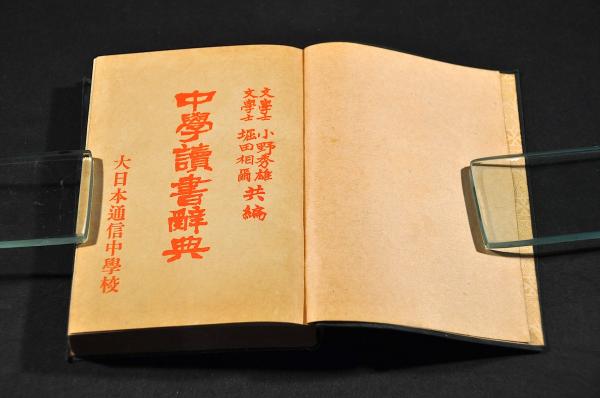 文學士 小野秀雄
文學士 堀田相爾 共編
中學讀書辭典
大日本通信中學校